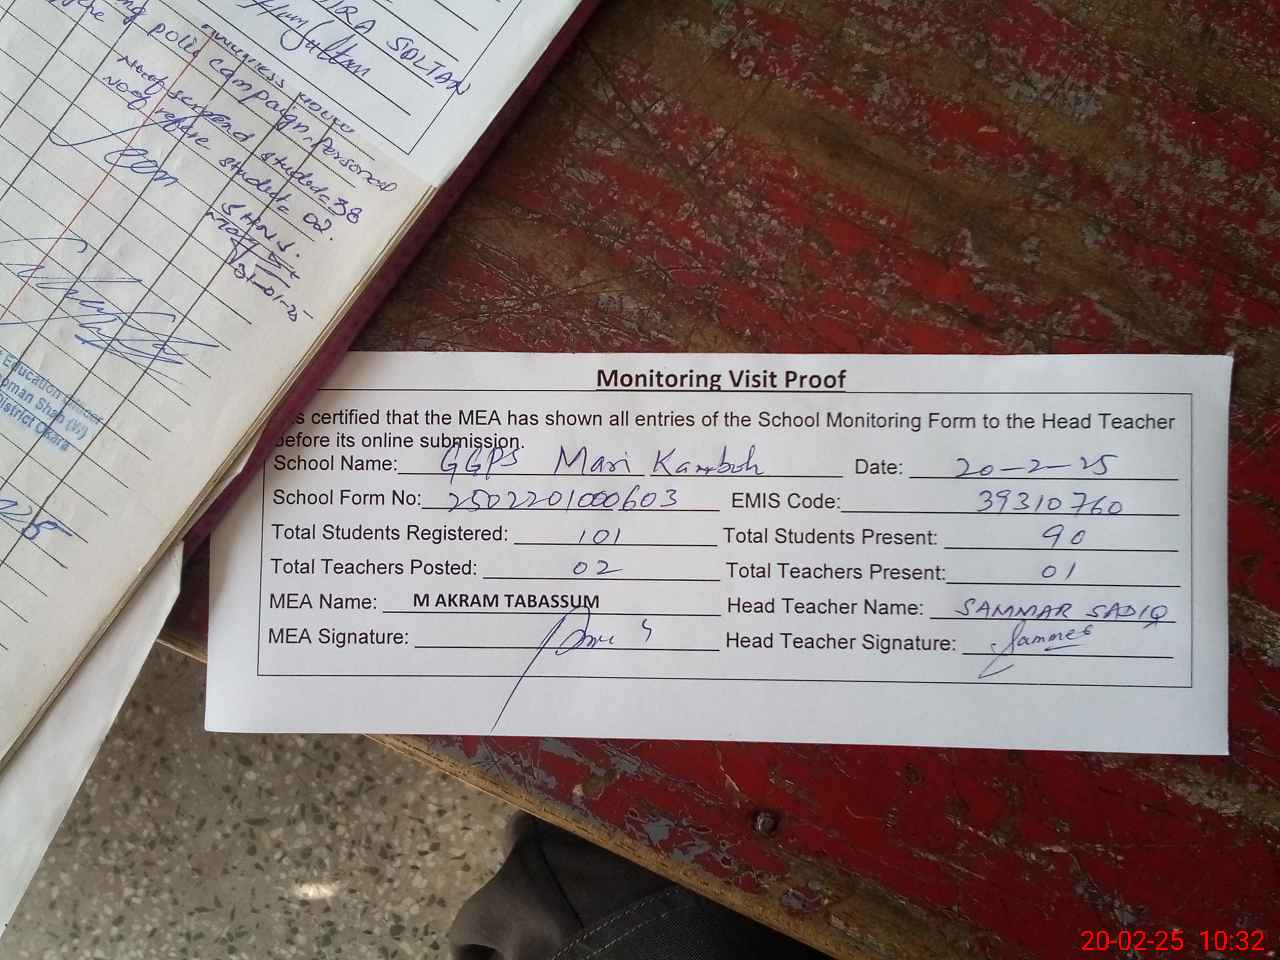 SULTAN
poli campaign
No of student 38
No of refuse student 02.
31-01-25
Education
District Okara
Monitoring Visit Proof
s certified that the MEA has shown all entries of the School Monitoring Form to the Head Teacher
before its online submission.
School Name: GGPS Mari Kamboh Date: 20-2-25
School Form No: 2502201000603 EMIS Code: 39310760
Total Students Registered: 101 Total Students Present: 90
Total Teachers Posted: 02 Total Teachers Present: 01
MEA Name: M AKRAM TABASSUM Head Teacher Name: SAMMAR SADIQ
MEA Signature: Head Teacher Signature: Sammer
20-02-25 10:32